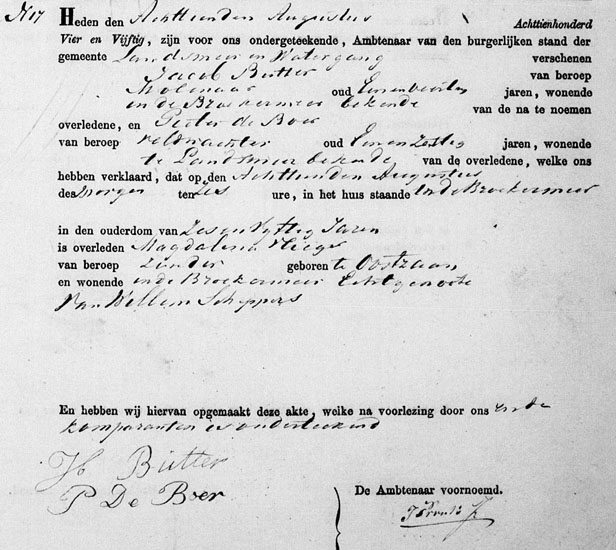 N 17
Heden den Achttienden Augustus Achttienhonderd
Vier en Vijftig, zijn voor ons ondergeteekende, Ambtenaar van den burgerlijken stand der
gemeente Landsmeer en Watergang verschenen
Jacob Butter van beroep
Molenaar oud jaren, wonende
in de Broekermeer bekende van de na te noemen
overledene, en Pieter de Boer
van beroep veldwachter oud Een en Zestig jaren, wonende
te Landsmeer bekende van de overledene, welke ons
hebben verklaard, dat op den Achttienden Augustus
des morgen ten Zes ure, in het huis staande in de Broekermeer
in den ouderdom van Zes en Vyftig Jaren
is overleden Magdalena Vlieger
van beroep Zonder geboren te Oostzaan
en wonende in de Broekermeer Echtgenoote
Van Willem Scheppers
En hebben wij hiervan opgemaakt deze akte, welke na voorlezing door ons en de
komparanten is onderteekend
Jb Butter
P De Boer
De Ambtenaar voornoemd.